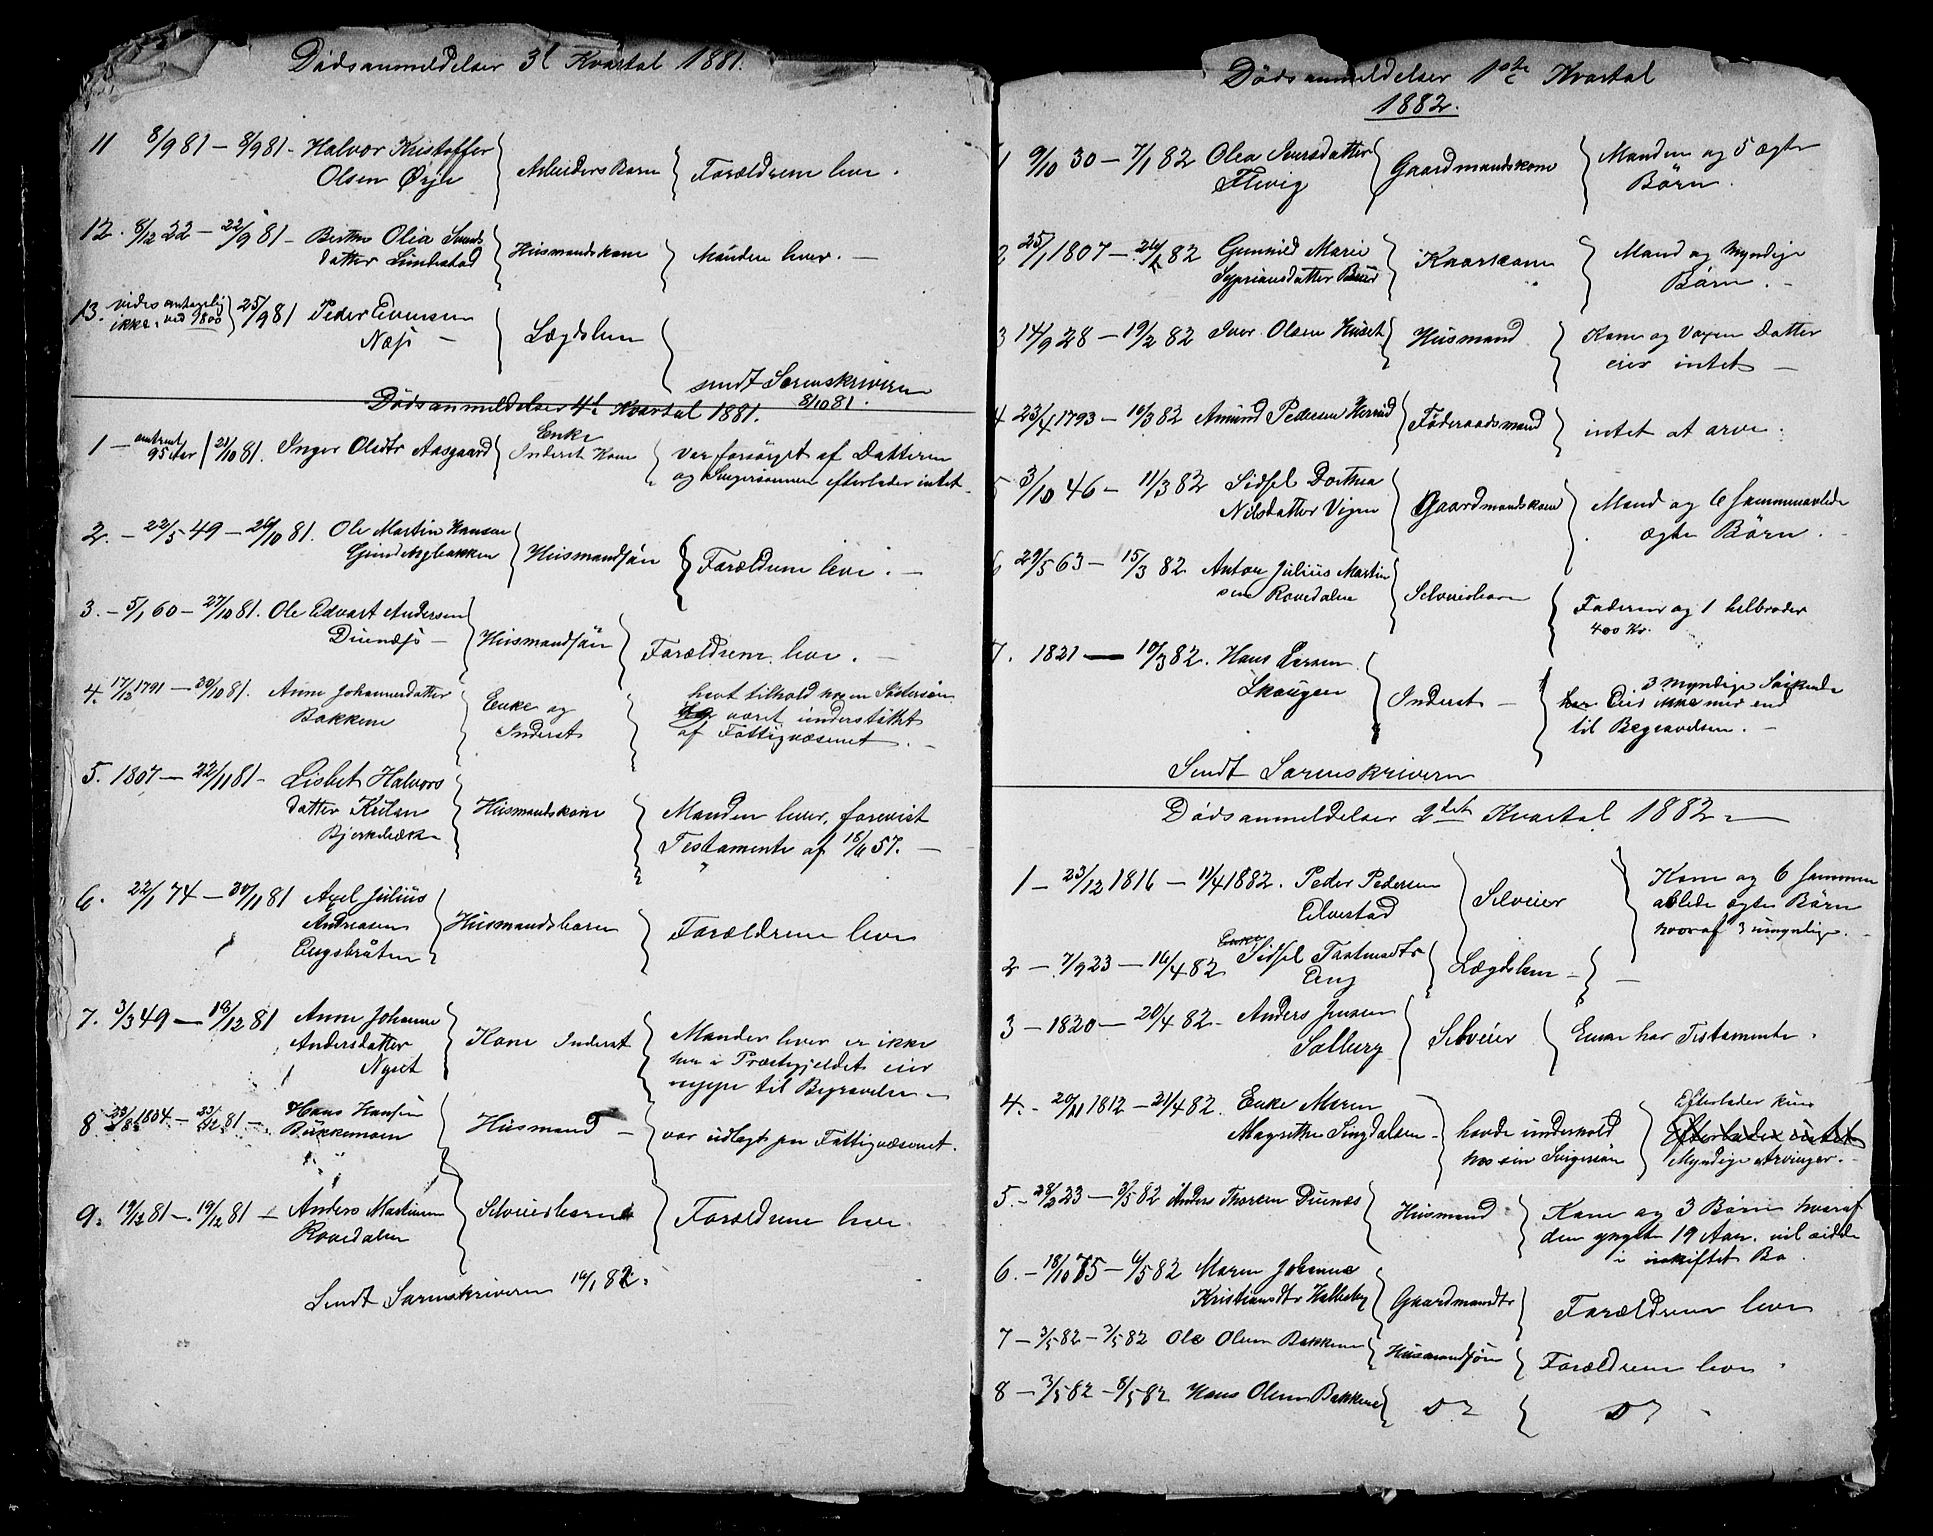 Dødsanmeldelser 3t Kvartal 1881.
11 8/9 81 – 8/9 81 – Halvor Kristoffer Arbeiders Barn Forældrene leve.
Olsen Øyh
12. 8/12 22 – 22/9 81 – Berthe Olia Svends Husmandskone Manden lever. –
datter Limbestad
13. vides antagelig 25/9 81 Peder Evensen Lægdslem
ikke, ved 1800 Næss –
sendt Sorenskriveren
8/10 81.
Dødsanmeldelser 4d Kvartal 1881.
1 – omtrent 21/10 81. Inger Olsdtr Aasgaard Enke var forsørget af Datteren
95 Aar Inderst Kone og Svigersønnen efterlader intet.
2. – 22/5 49 – 26/10 81. Ole Martin Hansen Husmandssøn Forældrene leve. –
3. – 5/1 60 – 27/10 81. Ole Edvart Andersen Husmandssøn Forældrene leve. –
Duenæss –
4. 17/12 1791 – 30/10 81. Anne Johannesdatter Enke og havt tilhold hos en Søstersøn
Bakkene Inderst været understøttet
af Fattigvæsenet. –
5. 1807 – 22/11 81 – Lisbet Halvors Husmandskone Manden lever, forevist
datter Testamente af 18/6 57. –
Bjerkebæk
6. 22/1 74 – 30/11 81 Axel Julius Husmandsbarn Forældrene leve
Andreasen
Engebråten
7. 3/3 49 – 19/12 81 Anne Johanne Kone Inderst Manden lever er ikke
Andersdatter her i Præstegjeldet eier
Nyset neppe til Begravelse –
8 23/8 1804 – 23/12 81 – Hans Hansen Husmand – var udlagt paa Fattigvæsenet.
Bukkemoen
9. 19/12 81 – 19/12 81 – Anders Martinsen Selveierbarn Forældrene leve.
Rovedalen
Sendt Sorenskriveren 16/1 82.
Dødsanmeldelser 1ste Kvartal
1882.
1 9/10 30 – 7/1 82 Olea Iversdatter Gaardmandskone Manden og 5 ægte
Flevig Børn.
2 25/1 1807 – 26/1 82 Gunnild Marie Kaarkone Mand og Myndige
Sypriansdatter Børn. –
3 14/9 28 – 19/2 82 Iver Olsen Huset Husmand Kone og Voxen Datter
eier intet –
4 23/4 1793 – 10/3 82 Amund Pedersen Føderaadsmand intet at arve.
5 3/10 46 – 11/3 82 Sidsel Dorthea Gaardmandskone Mand og 6 sammenavlede
Nilsdatter Vigen ægte Børn.
6 29/5 63 – 15/3 82 Anton Julius Martin Selveierbarn Faderen og 1 helbroder
sen Rovedalen 400 Kr.
7. 1821 – 10/3 82. Hans Larsen Inderst – 3 Myndige Søskende
Skougen har Eies ikke mer end
til Begravelsen. –
Sendt Sorenskriveren
Dødsanmeldelser 2det Kvartal 1882 –
1 – 23/12 1816 – 11/4 1882. Peder Pedersen Selveier Kone og 6 sammen
Elvestad avlede ægte Børn
hvoraf 3 umyndige.
2 – 7/9 23 – 16/4 82 Enke Sidsel Tostensdtr Lægdslem – –
Eng
3 – 1820 – 20/4 82 – Anders Jensen Selveier Enke har Testamente.
Solberg
4. – 20/11 1812 – 21/4 82. Enke Maren havde underhold Efterlader kun
Magrethe Singdalsen – hos sin Svigersøn Efterlader intet
Myndige Arvinger. –
5 – 28/2 23 – 3/5 82 Anders Thoresen Duenæs Husmand Kone og 3 Børn hvoraf
den yngste 19 Aar. vil sidde
i uskiftet Bo.
6. – 18/10 75 – 6/5 82 Maren Johanne Gaardmandtr Forældrene leve
Kristiansdtr Halleby
7 – 3/5 82 – 3/5 82 Ole Olsen Bakkene Husmandssøn Forældrene leve
8 – 3/5 82 – 8/5 82 Hans Olsen Bakkene Do Do